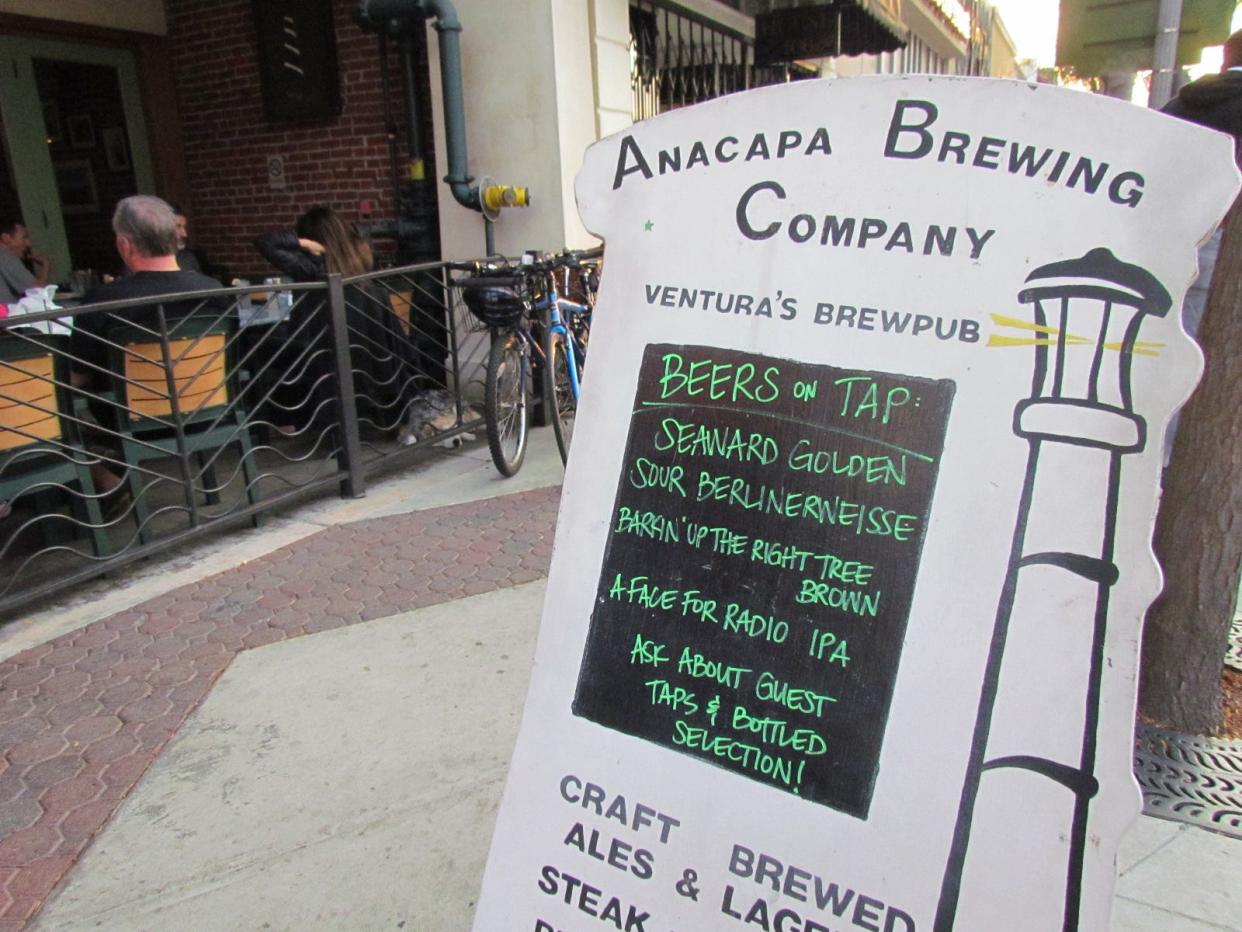 ANACAPA BREWING
COMPANY
VENTURA'S BREWPUB
BEERS ON TAP:
SEAWARD GOLDEN
SOUR BERLINERWEISSE
BARKIN' UP THE RIGHT TREE
BROWN
A FACE FOR RADIO IPA
ASK ABOUT GUEST
TAPS & BOTTLED
SELECTION!
CRAFT BREWED
ALES & LAGE
STEAK